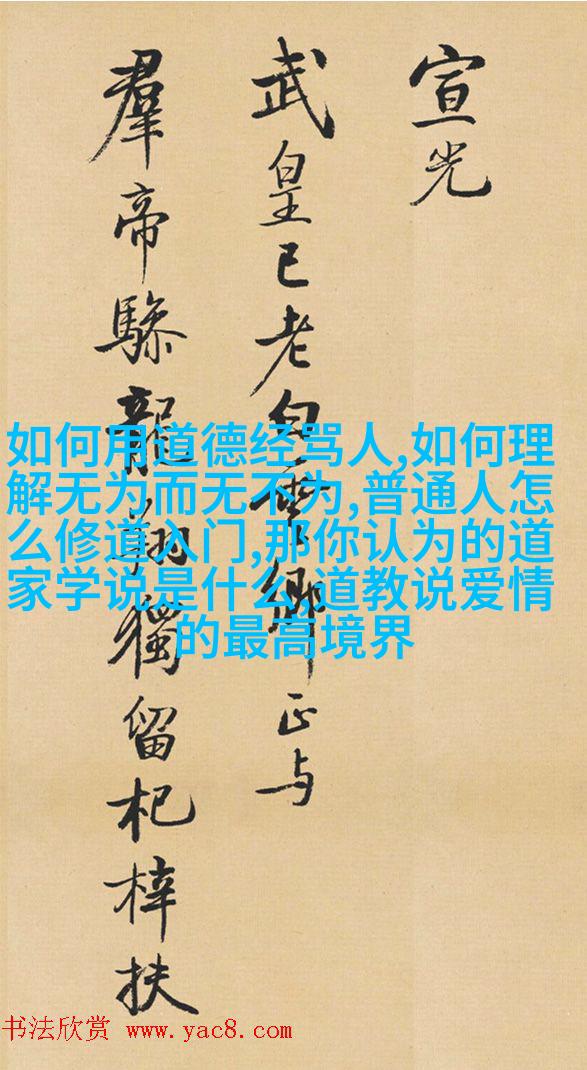 宣光
武皇已老白雲鄉正与
羣帝驂龍翔獨留杞梓扶
如何用道德经骂人,如何理
解无为而无不为,普通人怎
么修道入门,那你认为的道
家学说是什么,道教说爱情
的最高境界
书法欣赏 www.yac8.com